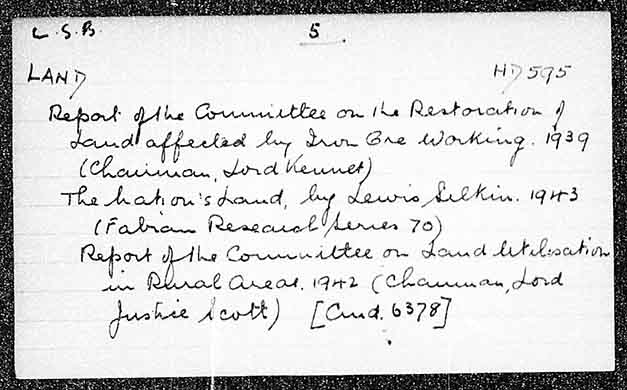 L.S.B. 5
LAND HD595
Report of the Committee on the Restoration of
Land affected by Iron Ore Working. 1939
(Chairman, Lord Kennet)
The Nation's Land, by Lewis Silkin. 1943
(Fabian Research Series 70)
Report of the Committee on Land Utilisation
in Rural Areas. 1942 (Chairman, Lord
Justice Scott) [Cmd. 6378]